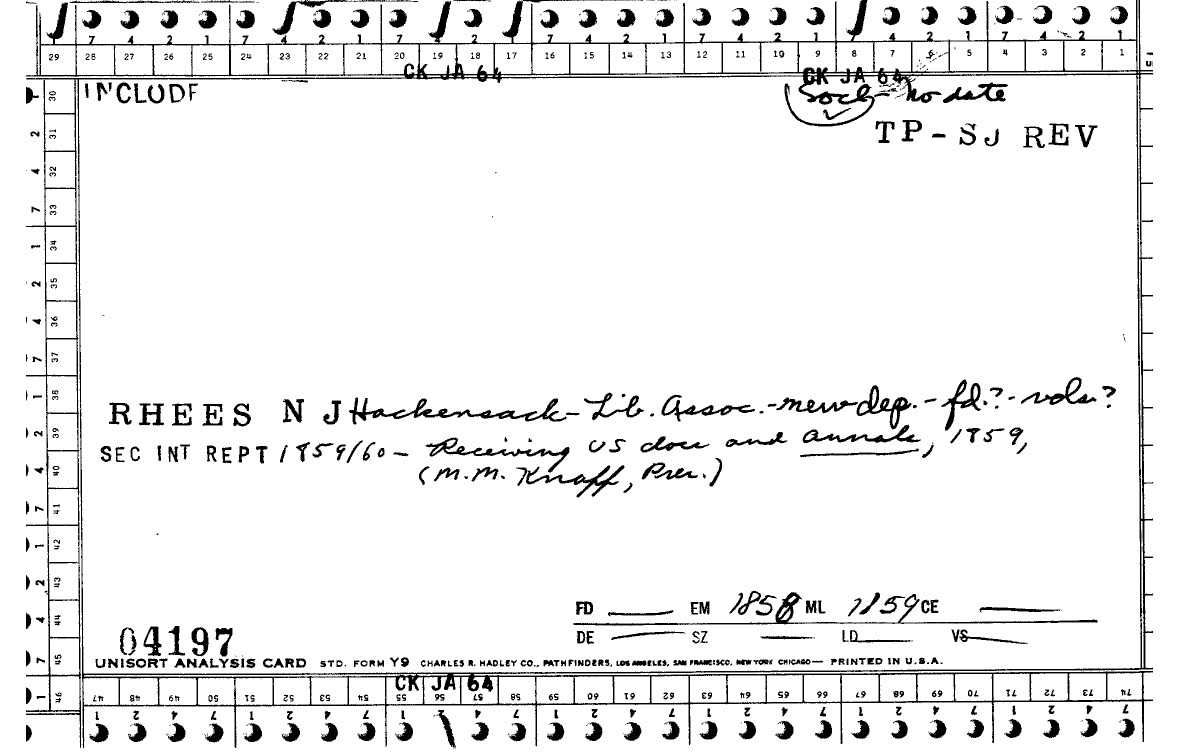 7 4 2 1 7 4 2 1 7 4 2 1 7 4 2 1 7 4 2 1 7 4 2 1 7 4 2 1
29 28 27 26 25 24 23 22 21 20 19 18 17 16 15 14 13 12 11 10 9 8 7 6 5 4 3 2 1
CK JA 64 CK JA 64
INCLUDE
Socl - no date
TP-SJ REV
30
2 31
4 32
7 33
1 34
2 35
4 36
7 37
1 38
2 39
4 40
7 41
1 42
2 43
4 44
7 45
1 46
RHEES N J Hackensack - Lib. Assoc. - merc dep. - fd.? - vols.?
SEC INT REPT 1859/60 - Receiving US docs and annals, 1859,
(M.M. Knapp, Pres.)
FD EM 1858 ML 1859 CE
DE SZ LD VS
04197
UNISORT ANALYSIS CARD STD. FORM Y9 CHARLES R. HADLEY CO., PATHFINDERS, LOS ANGELES, SAN FRANCISCO, NEW YORK CHICAGO— PRINTED IN U.S.A.
CK JA 64
47 48 49 50 51 52 53 54 55 56 57 58 59 60 61 62 63 64 65 66 67 68 69 70 71 72 73 74
1 2 4 7 1 2 4 7 1 2 4 7 1 2 4 7 1 2 4 7 1 2 4 7 1 2 4 7